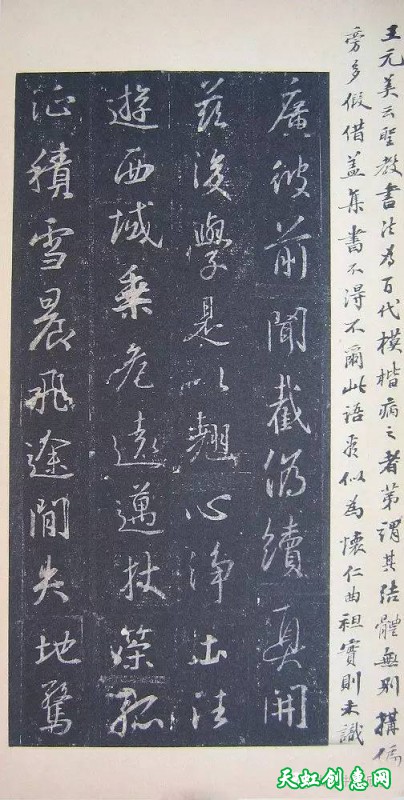 王元美云聖教書法為百代模楷病之者第謂其結體無別搆偏
旁多假借盖集書不得不爾此語殆似為懷仁曲袒實則未識
廣彼前聞截偽續真開
茲後學是以翹心淨土法
遊西域乘危遠邁杖策孤
征積雪晨飛途閒失地驚
天虹创惠网